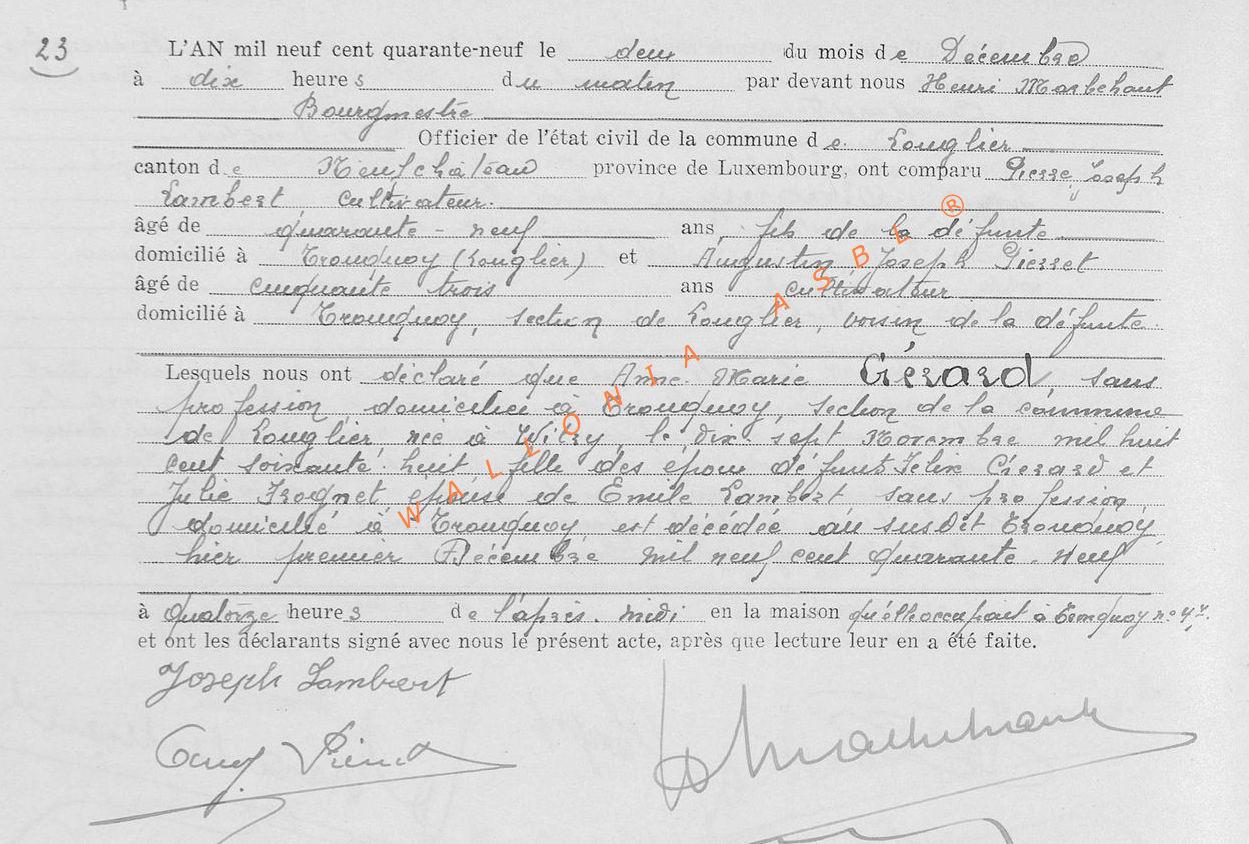 23
L'AN mil neuf cent quarante-neuf le deux du mois de Décembre
à dix heures du matin par devant nous Henri Marbehant
Bourgmestre
Officier de l'état civil de la commune de Longlier
canton de Neufchâteau province de Luxembourg, ont comparu Pierre, Joseph
Lambert cultivateur.
âgé de quarante-neuf ans, fils de la défunte
domicilié à Tronquoy (Longlier) et Augustin Joseph Pierret
âgé de cinquante trois ans cultivateur
domicilié à Tronquoy, section de Longlier, voisin de la défunte.
Lesquels nous ont déclaré que Anne Marie Gérard, sans
profession, domiciliée à Tronquoy, section de la commune
de Longlier née à Witry, le dix-sept Novembre mil huit
cent soixante-huit, fille des époux défunts Félix Gérard et
Julie Frognet épouse de Emile Lambert sans profession,
domicilié à Tronquoy est décédée au susdit Tronquoy,
hier premier Décembre mil neuf cent quarante-neuf
à quatorze heures de l'après-midi en la maison qu'elle occupait à Tronquoy n°
et ont les déclarants signé avec nous le présent acte, après que lecture leur en a été faite.
Joseph Lambert
WALLONIA ASBL ®